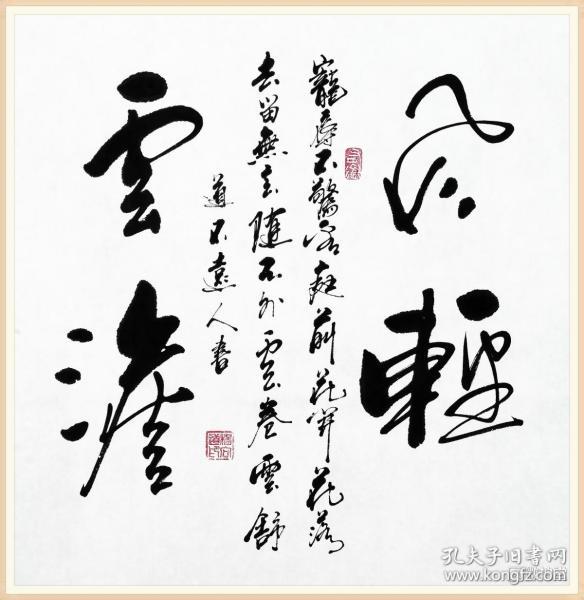 風輕
寵辱不驚看庭前花開花落
去留無意隨天外雲卷雲舒
道不遠人書
雲澹
孔夫子旧书网
www.kongfz.com